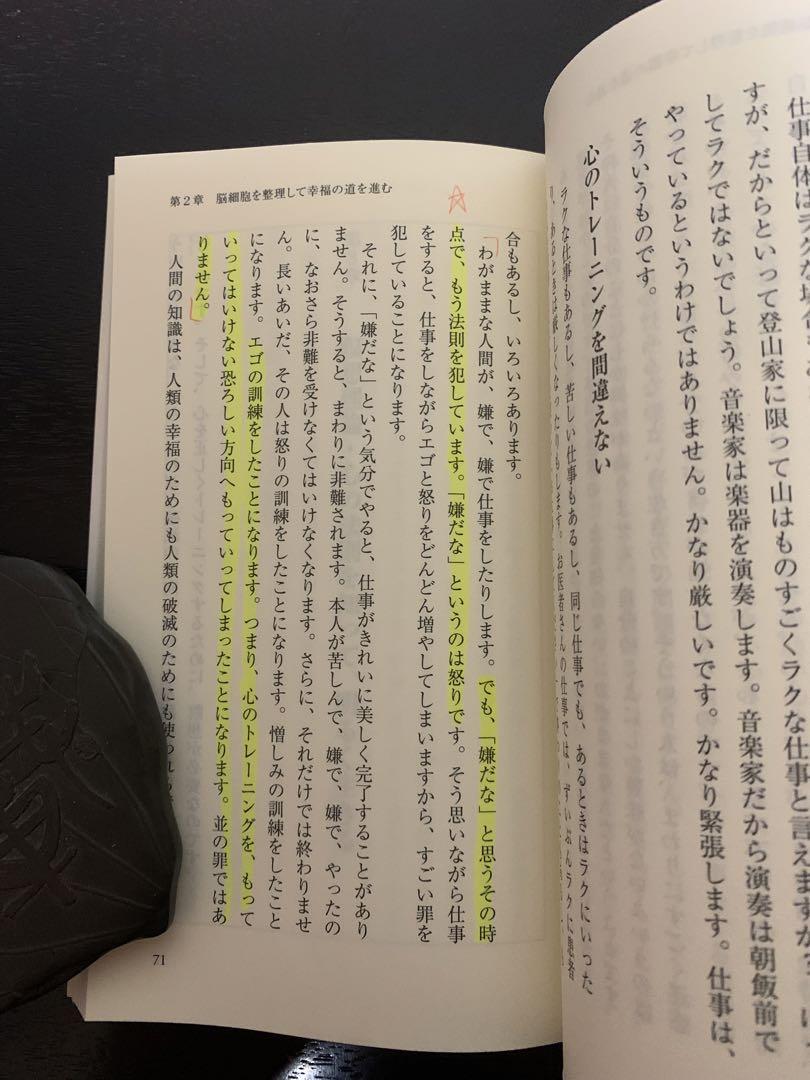 仕事自体はラクな場合も
すが、だからといって登山家に限って山はものすごくラクな仕事と言えますか
してラクではないでしょう。音楽家は楽器を演奏します。音楽家だから演奏は朝飯前で
やっているというわけではありません。かなり厳しいです。かなり緊張します。仕事は、
そういうものです。
心のトレーニングを間違えない
ラクな仕事もあるし、苦しい仕事もあるし、同じ仕事でも、あるときはラクにいった
り、あるときは厳しくなったりもします。お医者さんの仕事では、ずいぶんラクに患者
第2章 脳細胞を整理して幸福の道を進む
合もあるし、いろいろあります。
わがままな人間が、嫌で、嫌で仕事をしたりします。でも、「嫌だな」と思うその時
点で、もう法則を犯しています。「嫌だな」というのは怒りです。そう思いながら仕事
をすると、仕事をしながらエゴと怒りをどんどん増やしてしまいますから、すごい罪を
犯していることになります。
それに、「嫌だな」という気分でやると、仕事がきれいに美しく完了することがあり
ません。そうすると、まわりに非難されます。本人が苦しんで、嫌で、嫌で、やったの
に、なおさら非難を受けなくてはいけなくなります。さらに、それだけでは終わりませ
ん。長いあいだ、その人は怒りの訓練をしたことになります。憎しみの訓練をしたこと
になります。エゴの訓練をしたことになります。つまり、心のトレーニングを、もって
いってはいけない恐ろしい方向へもっていってしまったことになります。並の罪ではあ
りません。
人間の知識は、人類の幸福のためにも人類の破滅のためにも使われ
71